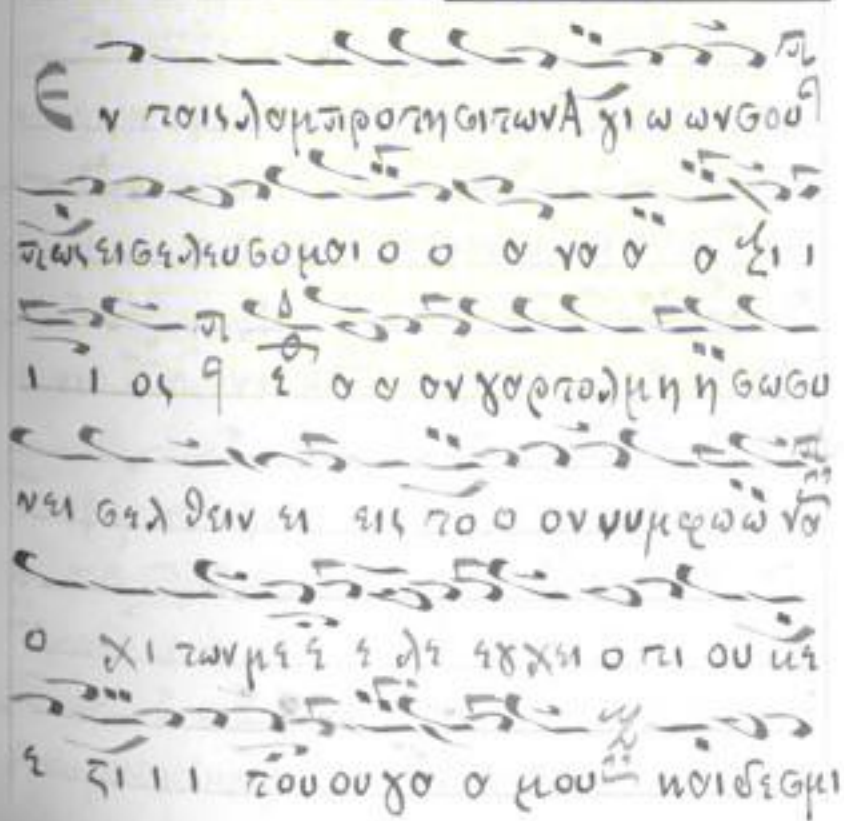 Εν ταις λαμπροτησι των Αγιωωνσου
πως εισελευσομαι ο ο α να α α ξι ι
ι ι ος ε α α αν γαρ τολμη η σω συ
νει σελ θειν ει εις το ο ον νυμφω ω να
ο χι των με ε ε λε εγχει οτι ουκ ε
ε στι ι ι του ου γα α μου και δεσμι